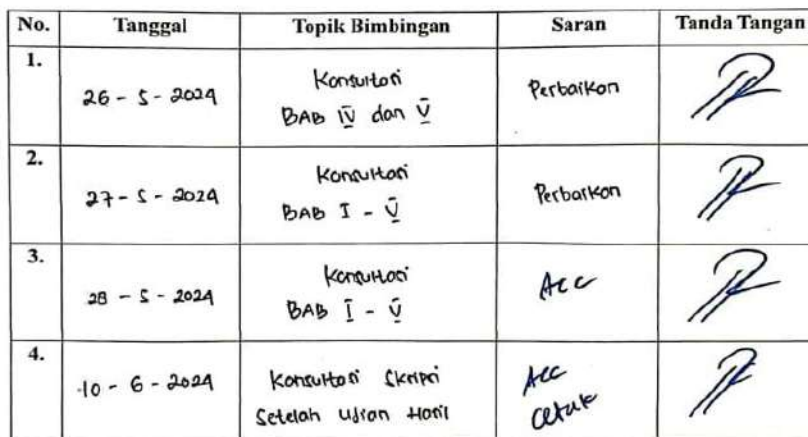 No. Tanggal Topik Bimbingan Saran Tanda Tangan
1.
26 - 5 - 2024 Konsultasi Perbaikan
BAB IV dan V
2.
27 - 5 - 2024 Konsultasi Perbaikan
BAB I - V
3.
28 - 5 - 2024 Konsultasi Acc
BAB I - V
4.
10 - 6 - 2024 Konsultasi Skripsi Acc
Setelah Ujian Hasil Cetak